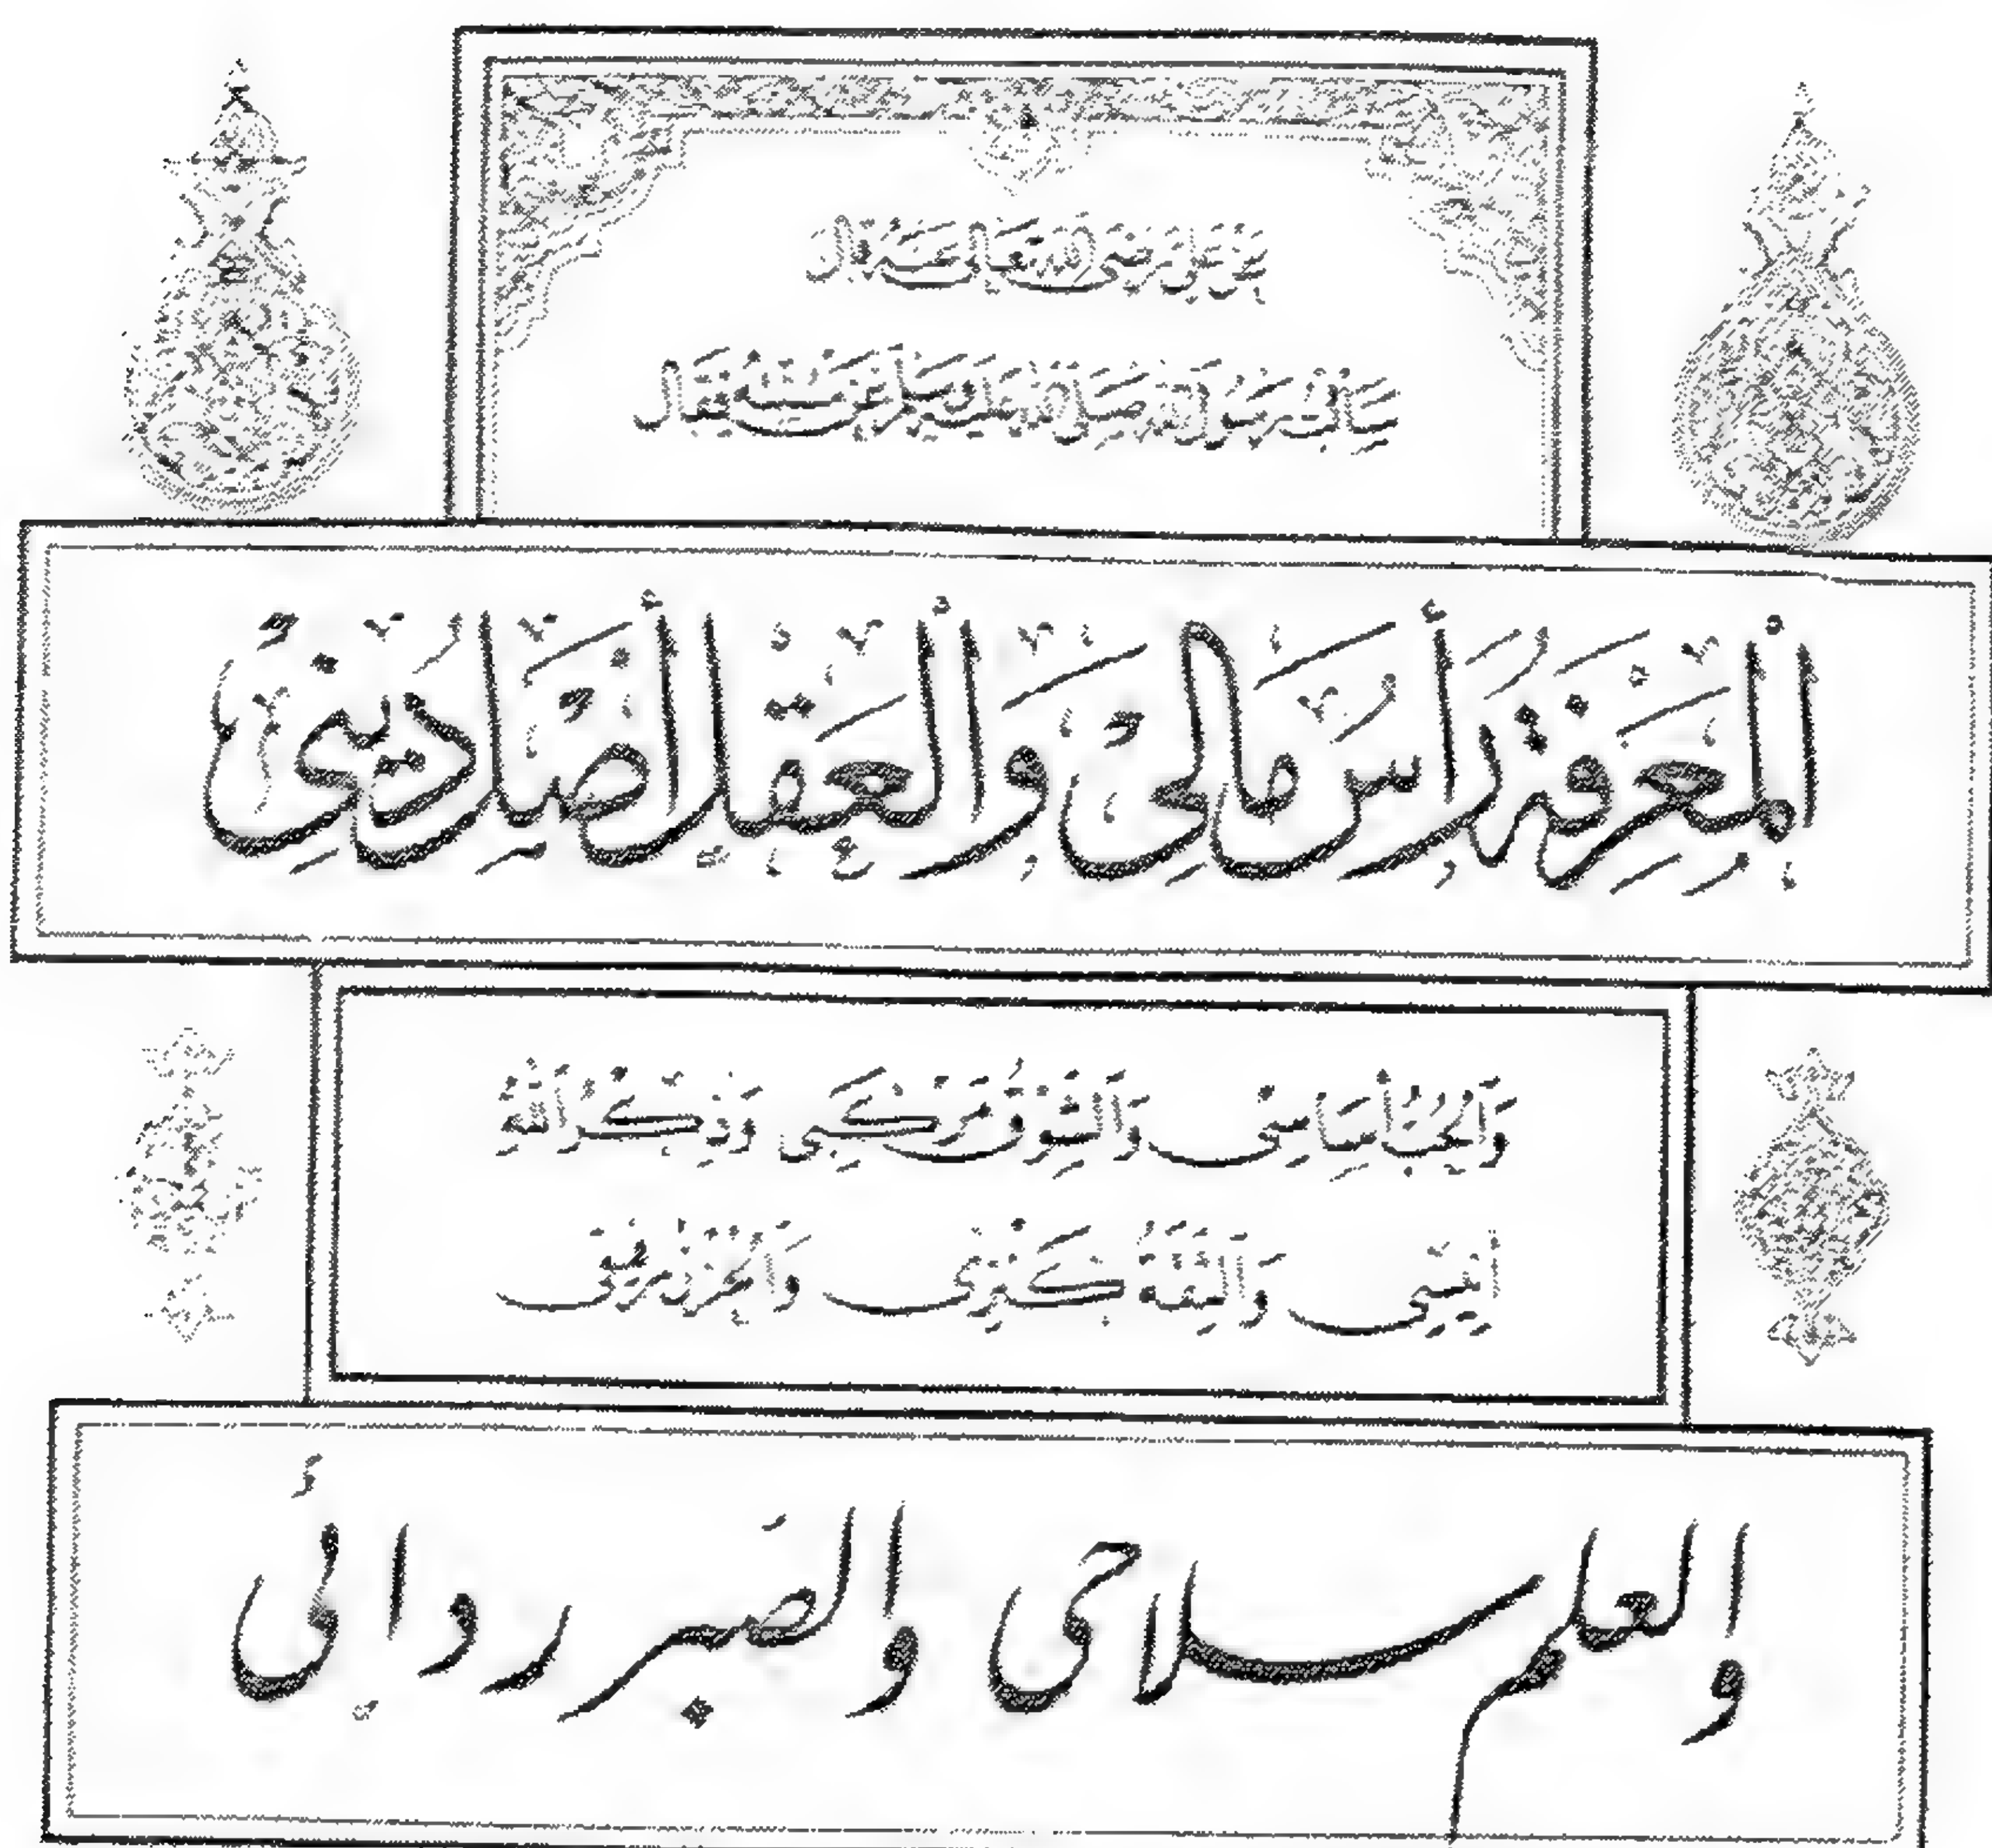 عن علي رضي الله تعالى عنه قال
سألت رسول الله صلى الله عليه وسلم عن سنته فقال
أَلْمَعْرِفَةُ رَأْسُ مَالِيْ وَأَلْعَقْلُ أَصْلُ دِيْنِيْ
وَالْحُبُّ أَسَاسِي وَالشَّوْقُ مَرْكَبِي وَذِكْرُ اللهِ
أَنِيسِي وَالثِّقَةُ كَنْزِي وَالْحُزْنُ رَفِيقِي
والعلم سلاحي والصَبر ردائي